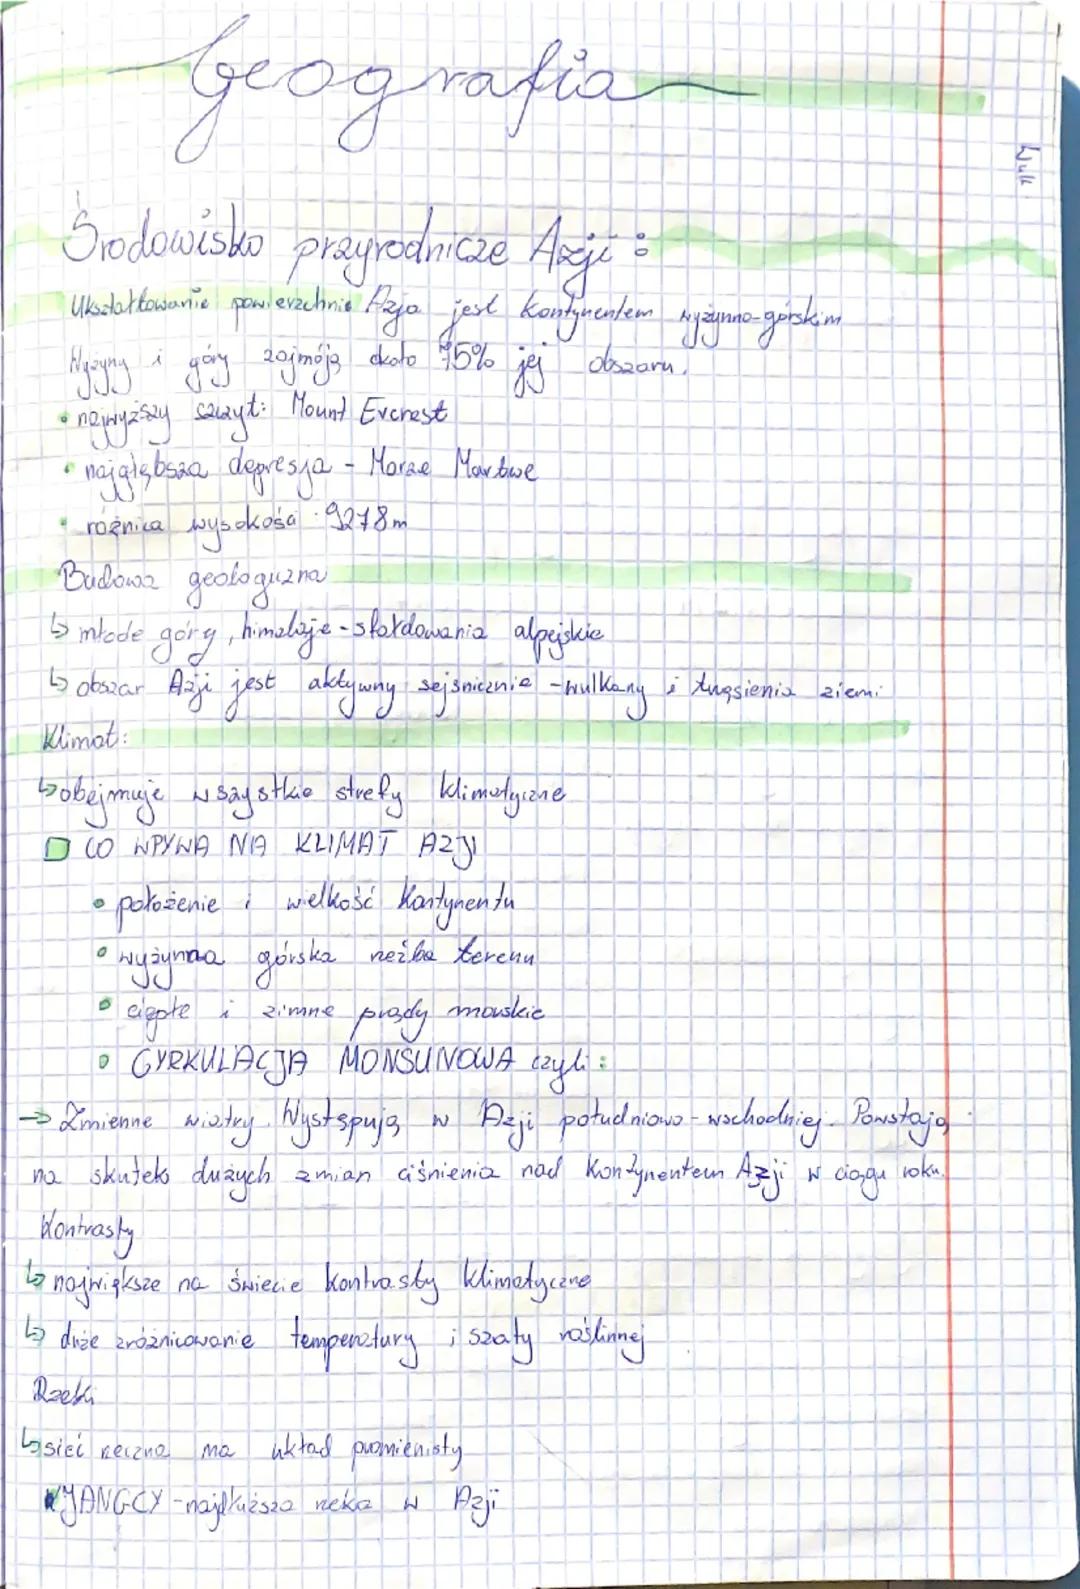 Geografia
Środowisko przyrodnicze Azji :
Ukształtowanie powierzchnie Azja jest kontynentem wyżynno-górskim
Wyżyny i góry zajmóją około 75% jej obszaru.
• najwyższy szczyt: Mount Everest
• najgłębsza depresja - Morze Martwe
• różnica wysokości 9278m
Budowa geologiczna
↳ młode góry, himalaje - sfałdowania alpejskie
↳ obszar Azji jest aktywny sejsnicznie - wulkany i tręsienia ziemi
Klimat:
↳ obejmuje wszystkie strefy klimatyczne
CO WPYWA NA KLIMAT AZJI
• położenie i wielkość kontynentu
• wyżynna górska rzeźba terenu
• ciepłe i zimne prądy morskie
• CYRKULACJA MONSUNOWA czyli :
→ Zmienne wiatry. Występują w Azji południowo-wschodniej. Powstają
na skutek dużych zmian ciśnienia nad kontynentem Azji w ciągu roku.
Kontrasty
↳ największe na świecie kontrasty klimatyczne
↳ duże zróżnicowanie temperatury i szaty roślinnej
Rzeki
↳ sieć rzeczna ma układ promienisty
JANGCY - najdłuższa rzeka w Azji